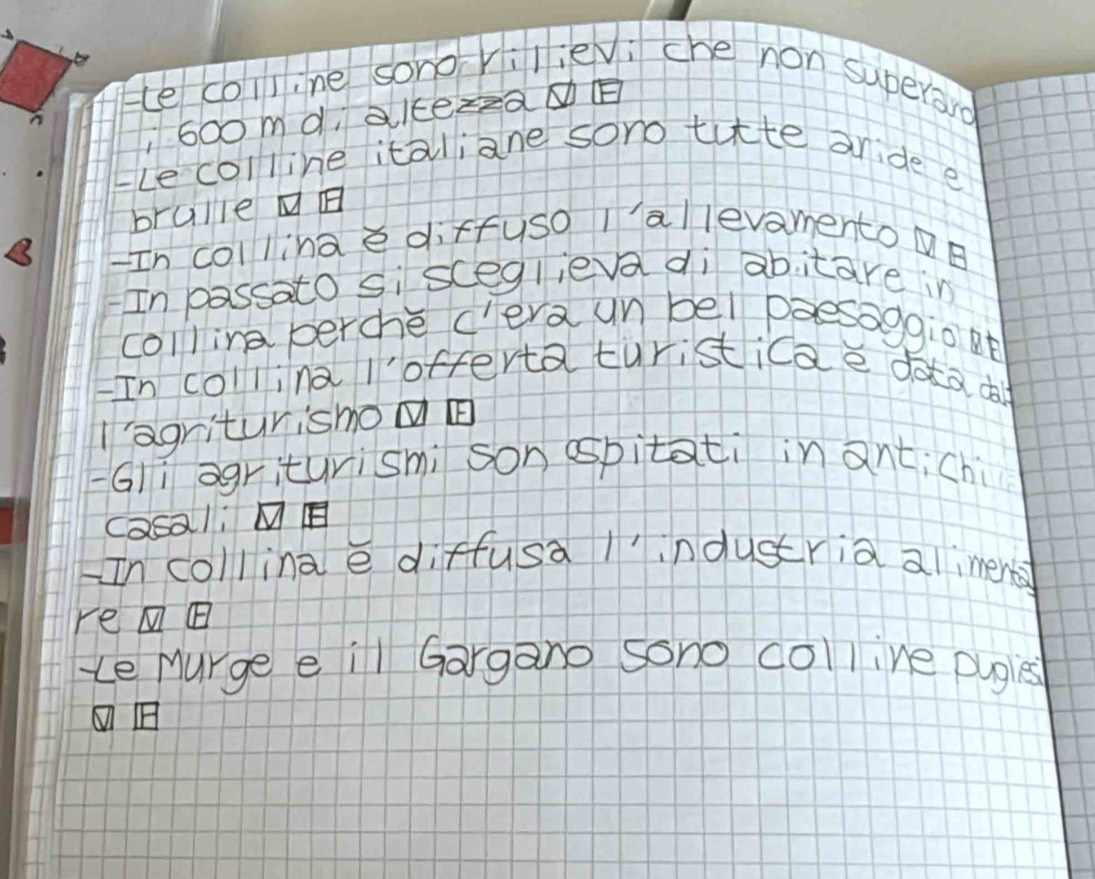 -Le colline sono rilievi che non superano
i 600 m di altezza V F
-Le colline italiane sono tutte aride e
brulle V F
-In collina è diffuso l'allevamento V F
-In passato si sceglieva di abitare in
collina perchè c'era un bel paesaggio V F
-In collina l'offerta turistica è data dal
l'agriturismo V F
-Gli agriturismi son ospitati in antichi
casali V F
-In collina è diffusa l'industria alimenta
re V F
-Le Murge e il Gargano sono colline puglesi
V F